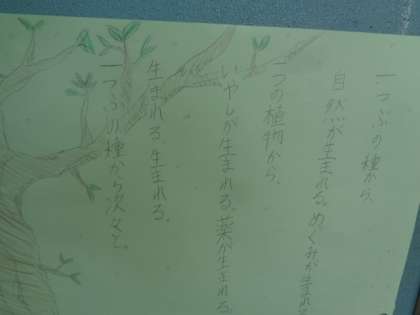 一つぶの種から、
自然が生まれる。めぐみが生まれ
一つの植物から、
いやしが生まれる。薬が生まれる。
生まれる、生まれる。
一つぶの種から次々と。